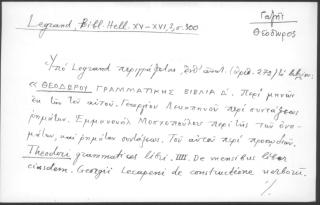 Legrand, Bibl. Hell. XV-XVI, 3, σ. 300
Γαζῆς
Θεόδωρος
Ὑπὸ Legrand περιγράφεται, (ἀριθ. 273) τὸ βιβλίον:
« ΘΕΟΔΩΡΟΥ ΓΡΑΜΜΑΤΙΚΗΣ ΒΙΒΛΙΑ Δ΄. Περὶ μηνῶν
ἐκ τῆς τοῦ αὐτοῦ. Γεωργίου Λεκαπηνοῦ περὶ συντάξεως
ῥημάτων. Ἐμμανουὴλ Μοσχοπούλου περὶ τῆς τῶν ὀνο-
μάτων, καὶ ῥημάτων συντάξεως. Τοῦ αὐτοῦ περὶ προσῳδιῶν.
Theodori grammatices libri IIII. De mensibus liber
eiusdem. Georgii Lecapeni de constructione verborum.
./.